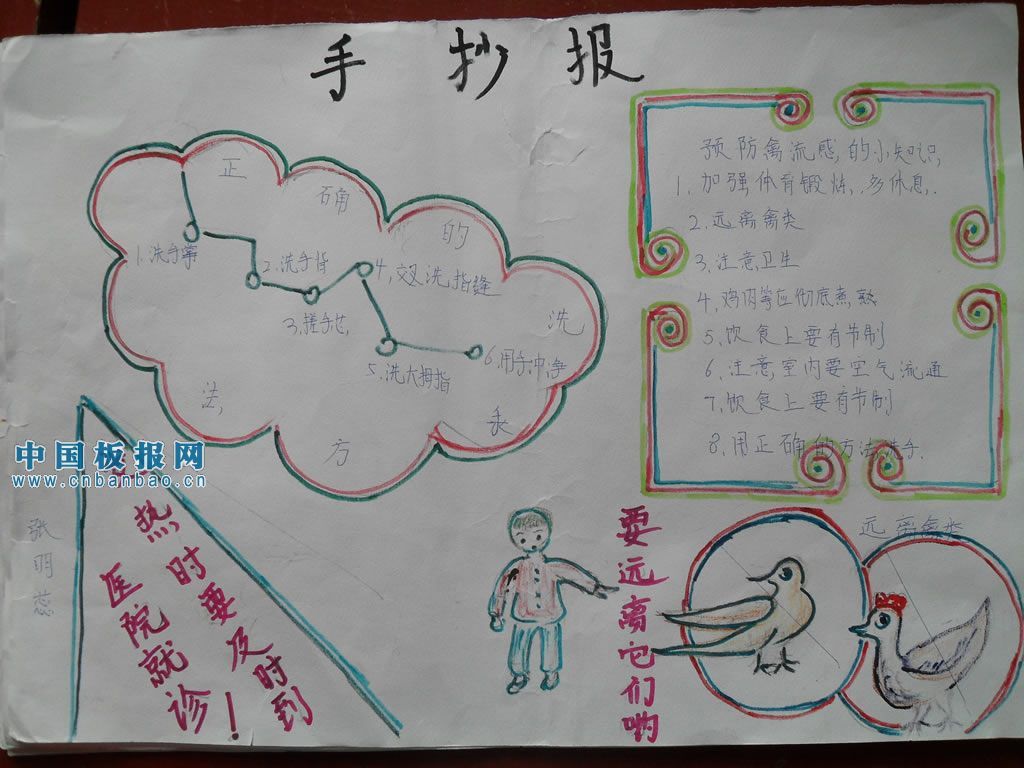 手抄报
正确的洗手方法
1.洗手掌
2.洗手背
3.搓手心
4.交叉洗指缝
5.洗大拇指
6.用手冲净
预防禽流感的小知识
1.加强体育锻炼,多休息.
2.远离禽类
3.注意卫生
4.鸡肉等应彻底煮熟
5.饮食上要有节制
6.注意室内要空气流通
7.饮食上要有节制
8.用正确的方法洗手.
中国板报网
www.cnbanbao.cn
张明蕊
热时要及时到
医院就诊!
要远离它们哟
远离禽类